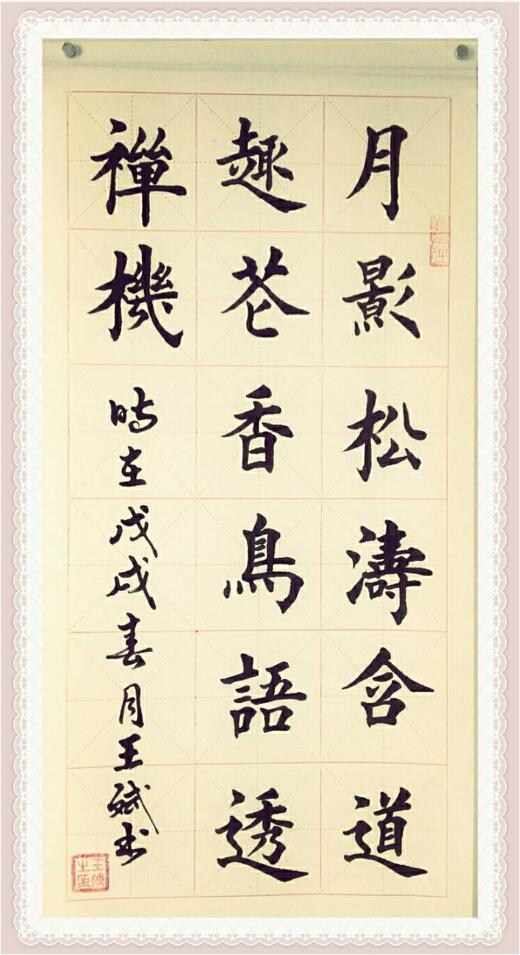 月影松濤含道
趣花香鳥語透
禪機
時在戊戌春月王斌书